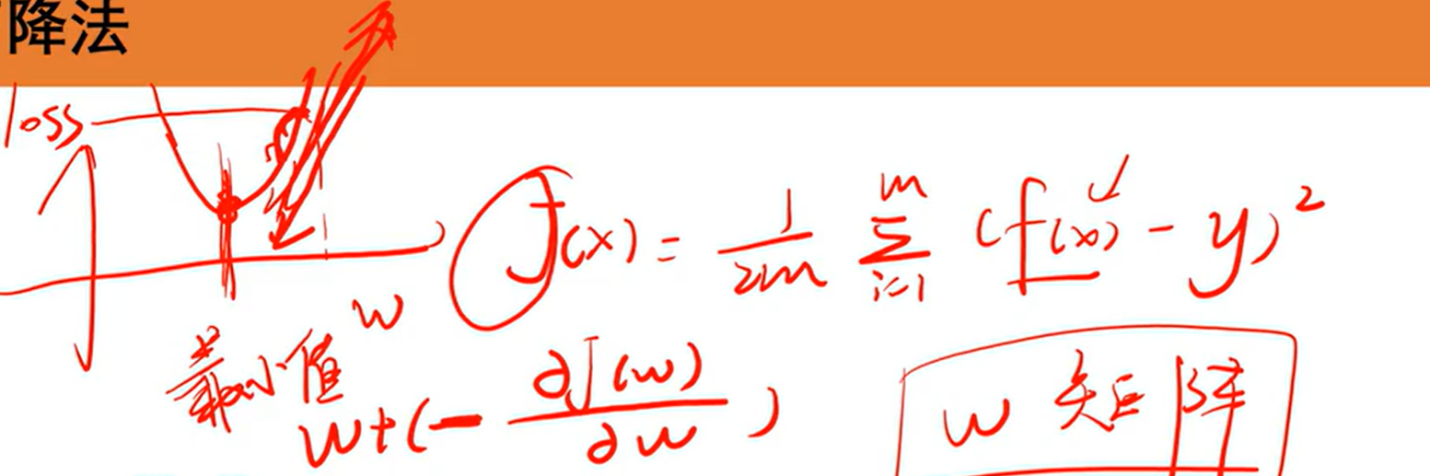 降法
loss
J(x) = 1/2m Σ i=1 m (f(x) - y)²
w
最小值
w+(- ∂J(w)/∂w )
w 矩阵